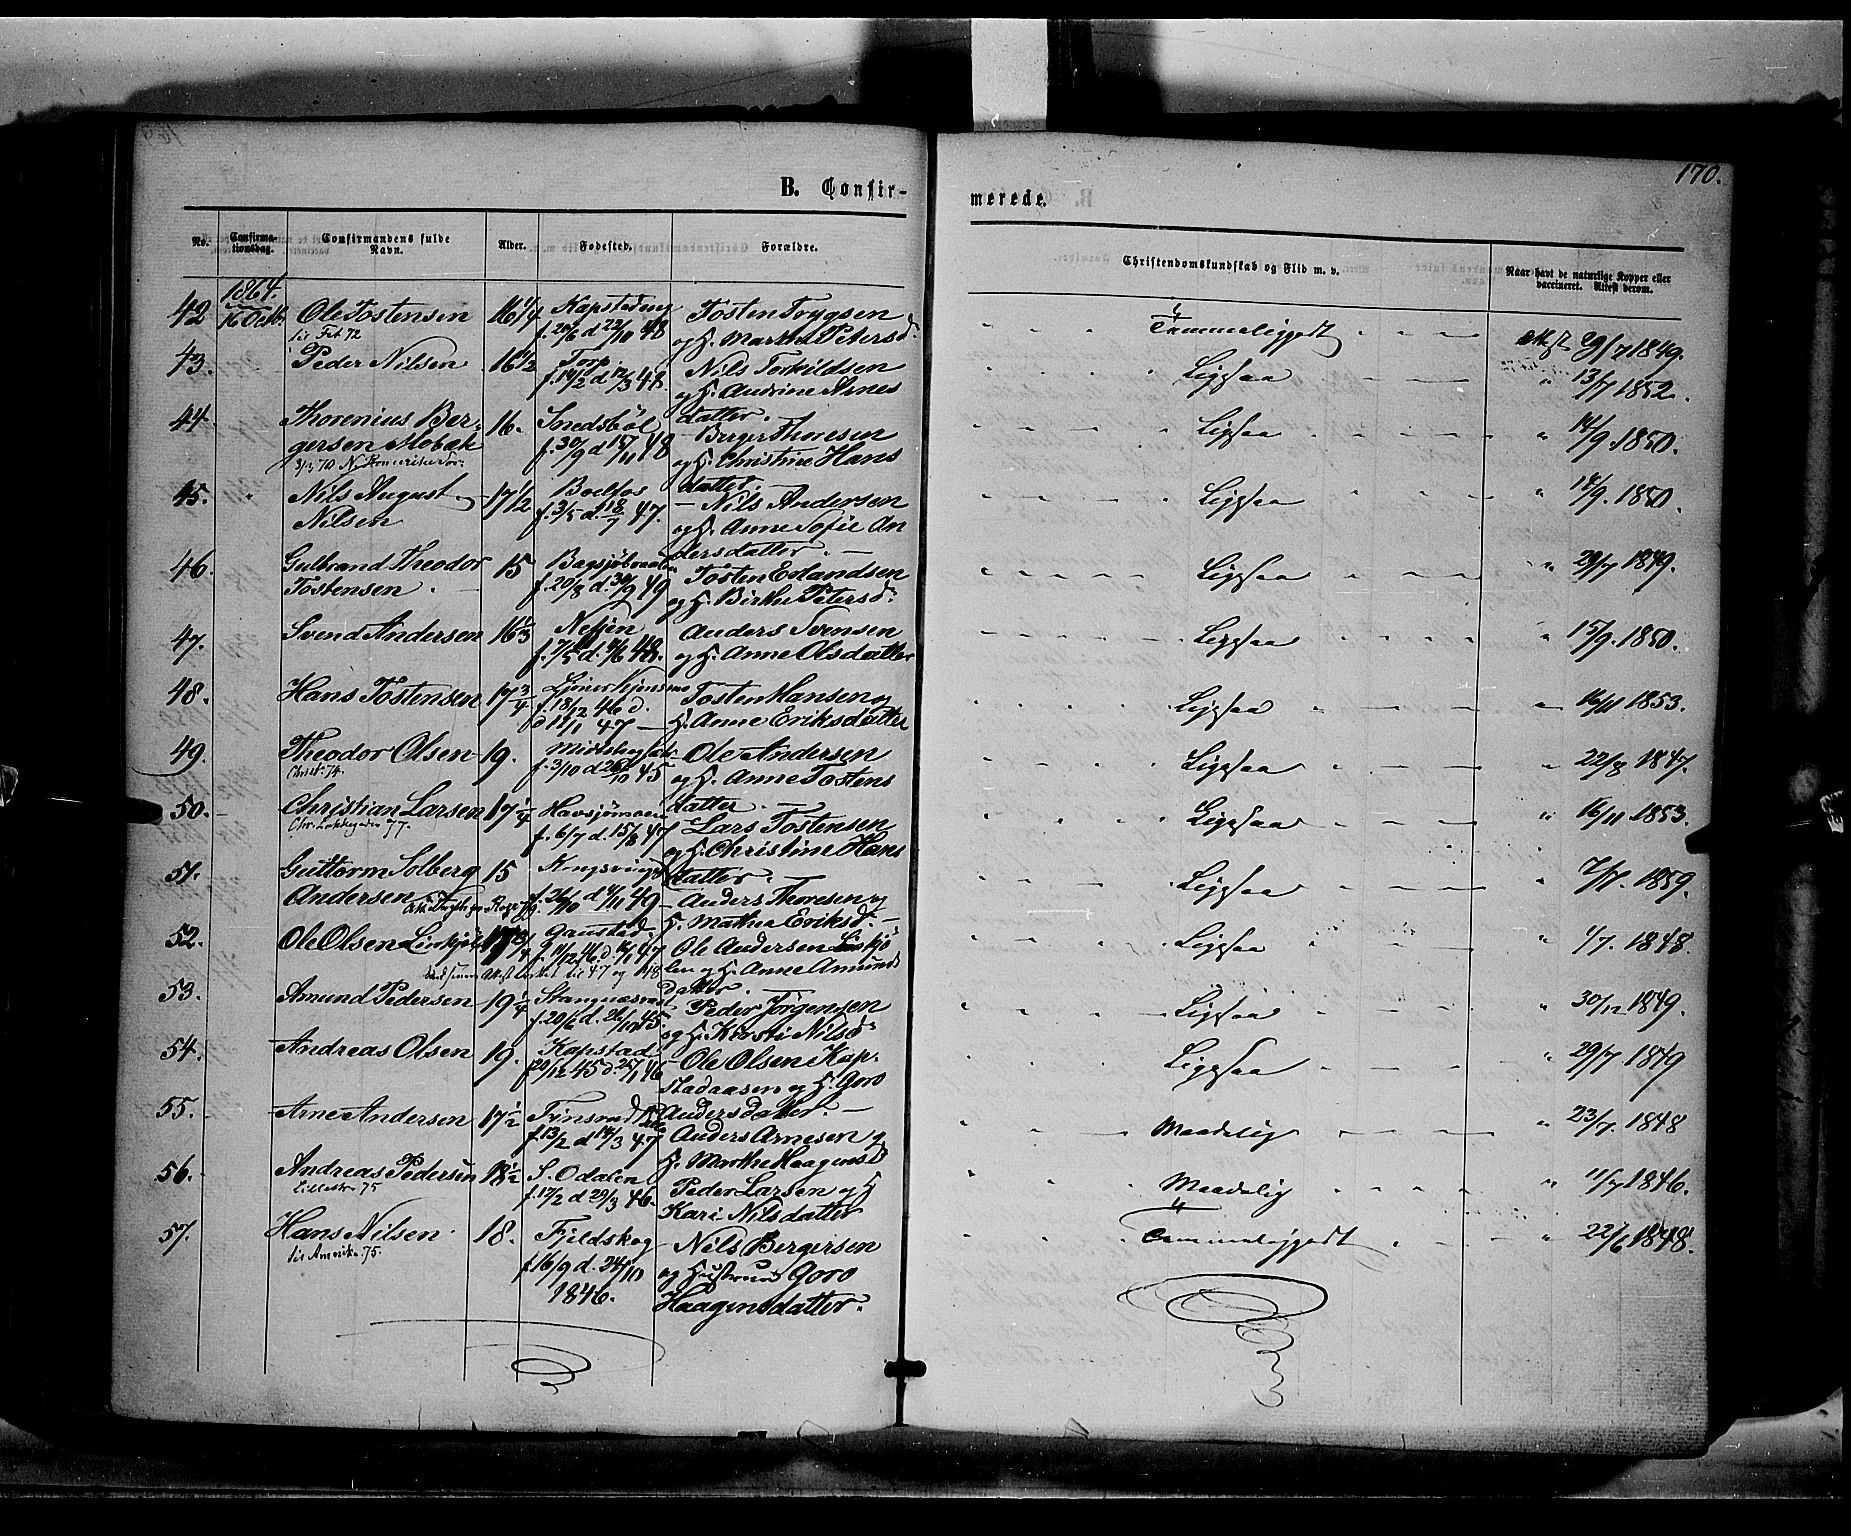 170.
B. Confir-
merede.
No.
Confirma-
tionsdag.
Confirmandens fulde
Navn.
Alder.
Fødested.
Forældre.
Christendomskundskab og Flid m. v.
Naar havt de naturlige Kopper eller
vaccineret. Attest derom.
1864.
42 16 Octbr Ole Tostensen 16 1/4 Tosten Trygsen
til Fet 72 f. 20/6 d 22/10 48 og H. Marthe Petersd: Temmeliggodt Attest 29/7 1849.
43. Peder Nilsen 16 1/2 Torp Nils Torkildsen
f. 14/2 d 12/3 48 og H. Andrine Arnes Ligesaa " 13/7 1852.
44. Thorenius Ber- 16. Snedsböl datter.
gersen Mobæk f. 30/9 d 15/11 48 Berger Thoresen Ligesaa " 14/9. 1850.
3/3 70 og H. Christine Hans
45. " Nils August 17 1/2 Boelfos datter.
Nilsen f. 3/5 d. 18/7 47. Nils Andersen Ligesaa " 18/9. 1850.
og H. Anne Sofie An
46. Gulbrand Theodor 15 dersdatter.
Tostensen f. 20/8 d. 30/9 49 Tosten Erlandsen Ligesaa " 29/7 1849.
og H. Birthe Petersd:
47. Svend Andersen 16 1/3 Anders Svensen
og H. Anne Olsdatter Ligesaa " 15/9. 1850.
48. Hans Tostensen 17 3/4 Tosten Hansen og
f. 18/12 46 d. H. Anne Eriksdatter Ligesaa " 16/11 1853.
d 11/1 47
49. Theodor Olsen 19. Ole Andersen
Christ. 74. f. 3/10 d 26/10 45 og H. Anne Tostens Ligesaa " 22/8 1847.
50. Christian Larsen 17 1/4 Havsjømoen datter.
77. f. 6/7 d. 15/8 47 Lars Tostensen Ligesaa " 16/11 1853.
og H. Christine Hans
51. Guttorm Solberg 15 datter.
Andersen Anders Thoresen og Ligesaa " 7/7. 1859.
H. Mathea Eriksd:
52. Ole Olsen Ole Andersen
og H. Anne Amunds Ligesaa " 4/7. 1848.
53. Amund Pedersen 19 1/4 datter.
Peder Jørgensen
og H. Kirsti Nilsd: Ligesaa " 30/12 1849.
54. Andreas Olsen 19. Kapstad Ole Olsen Kap-
f 20/12 45 d. 25/1 46 stadaasen og H. Goro Ligesaa " 29/7 1849
55. Arne Andersen 17 1/2 Andersdatter.
f. 13/2 d 14/3 47 Anders Arnesen og Maadelig " 23/7. 1848
H. Marthe Haagensd
56. Andreas Pedersen 18 1/2 S. Odalen
Lillestr. 75 f. 17/2 d 29/3 46. Peder Larsen og H Maadelig " 11/7 1846.
Kari Nilsdatter
57. Hans Nilsen. 18. Fjeldskog Nils Bergersen Temmeliggodt " 22/6 1848.
til Amerika 75. f. 16/9 d. 24/10 og Hustrue Goro
1846. Haagensdatter.